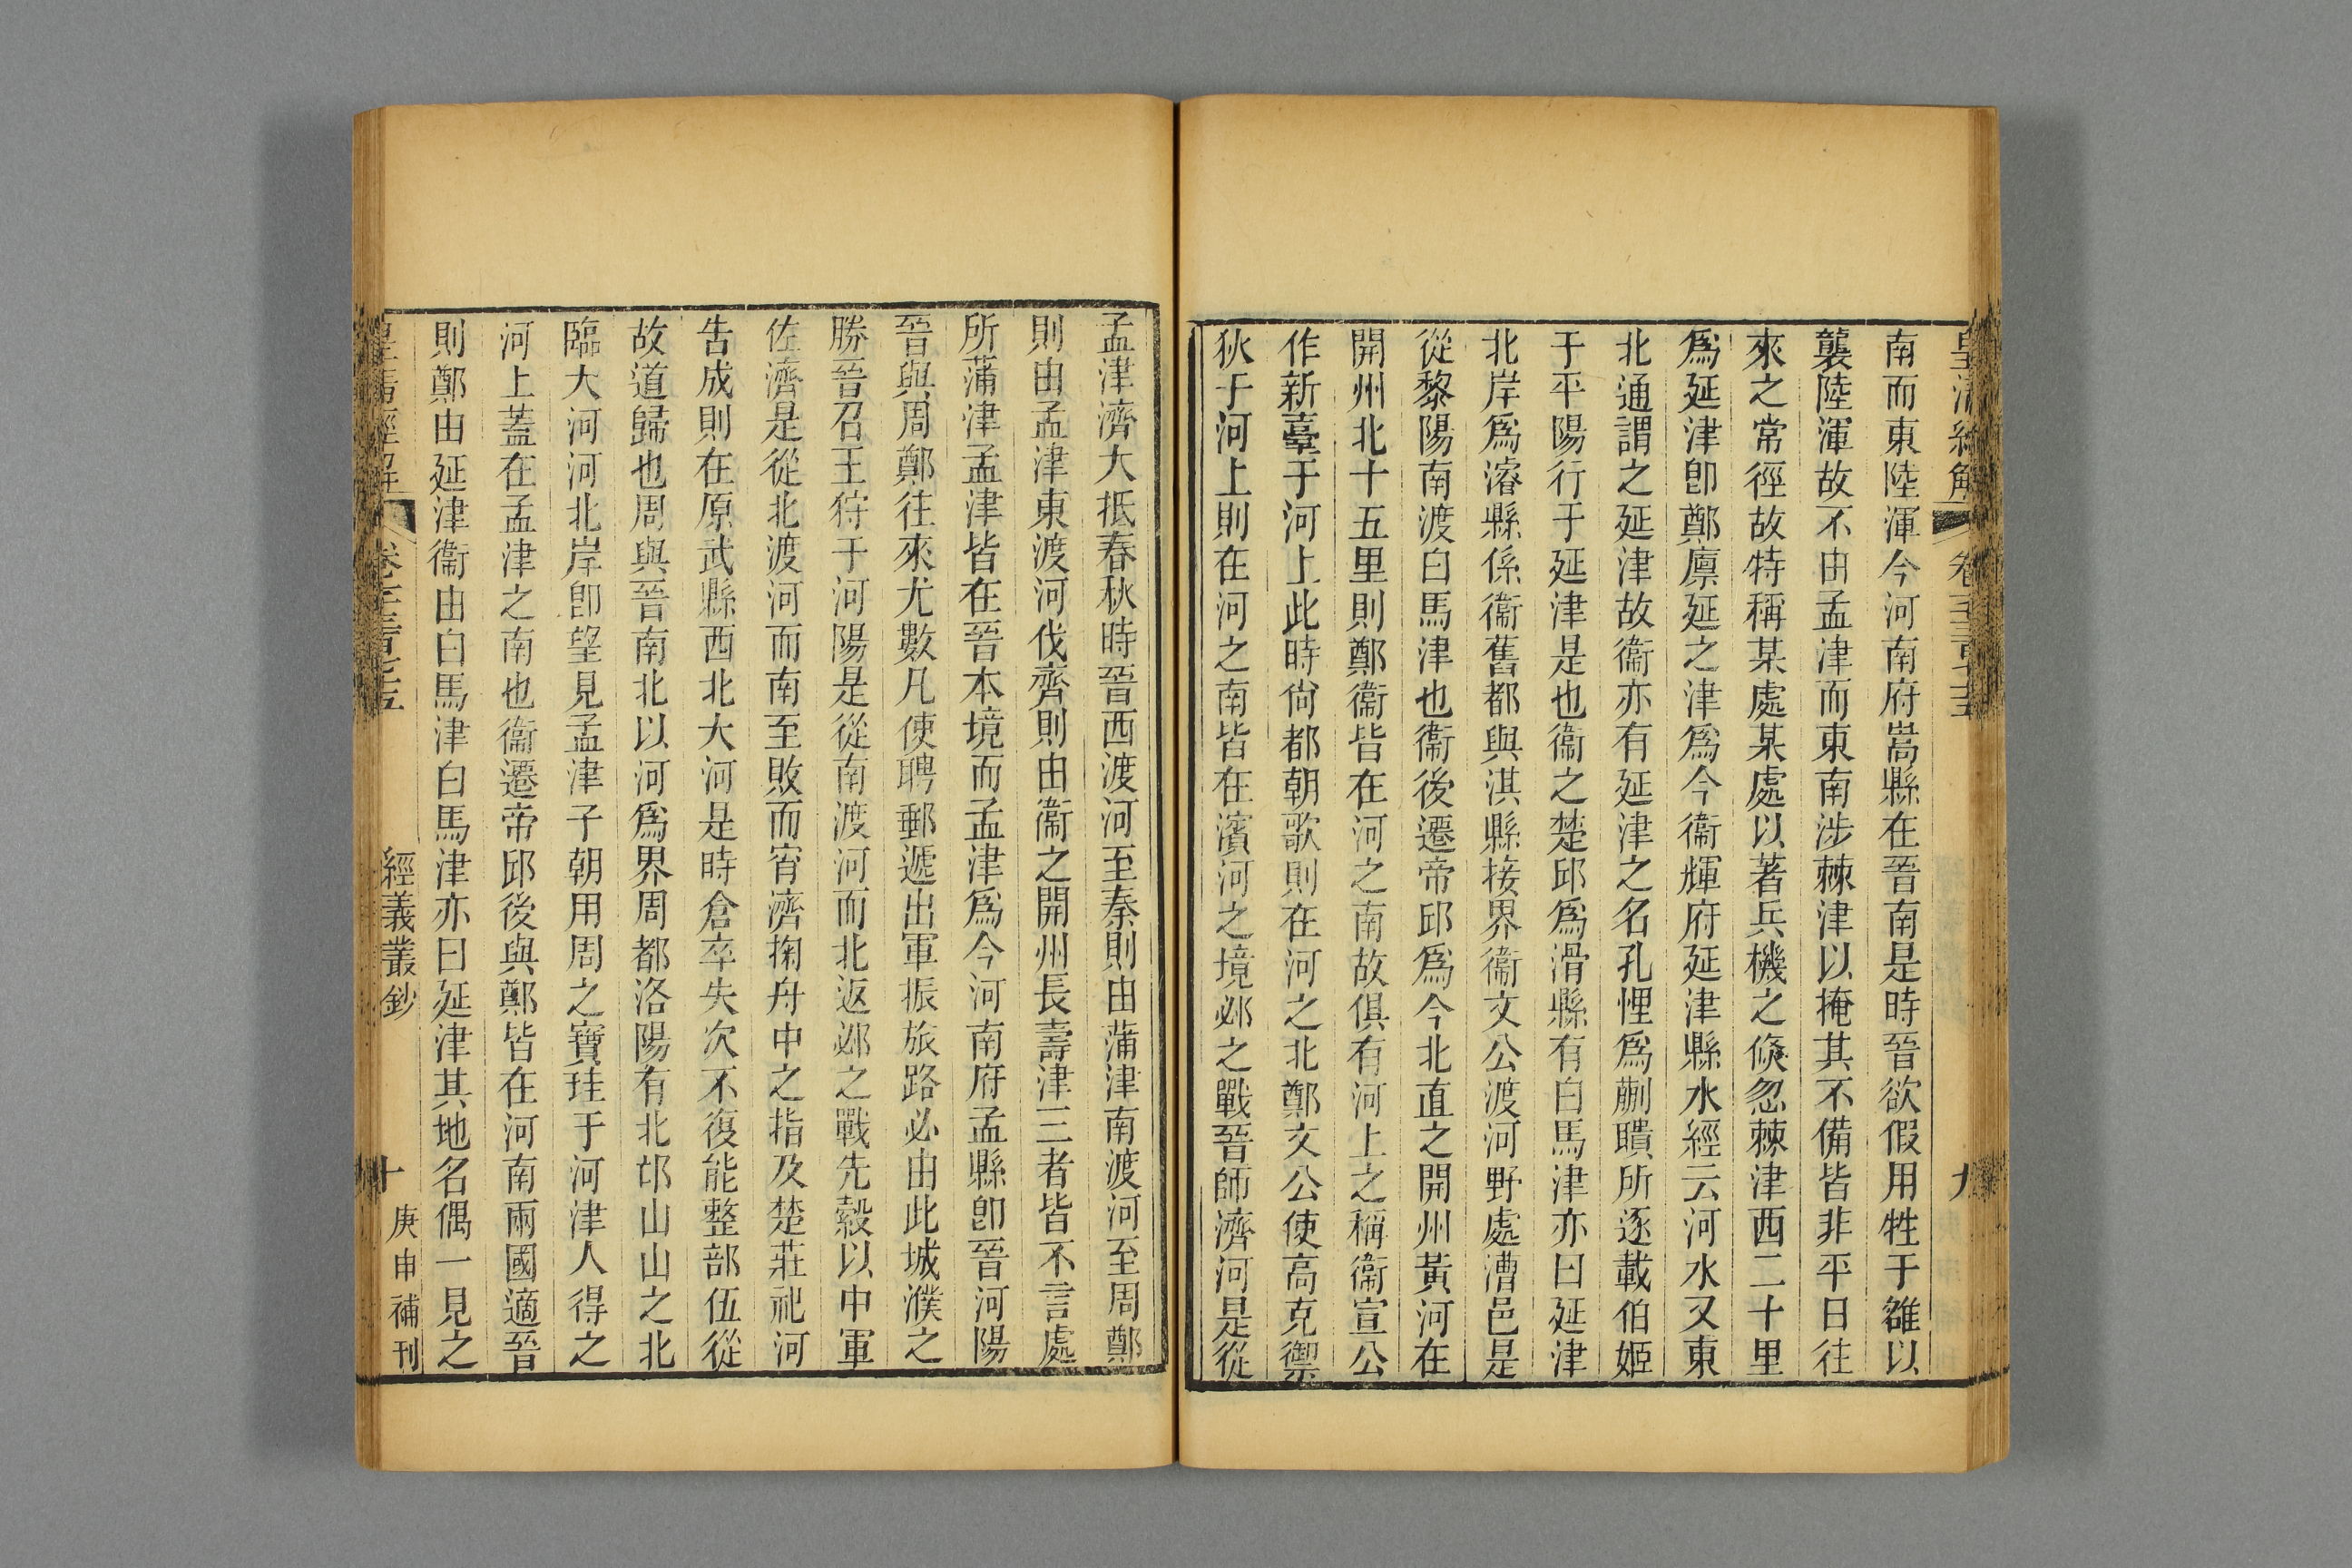 南而東陸渾今河南府嵩縣在晉南是時晉欲假用牲于雒以
襲陸渾故不由孟津而東南涉棘津以掩其不備皆非平日往
來之常徑故特稱某處某處以著兵機之倏忽棘津西二十里
爲延津卽鄭廩延之津爲今衞輝府延津縣水經云河水又東
北通謂之延津故衞亦有延津之名孔悝爲蒯聵所逐載伯姬
于平陽行于延津是也衞之楚邱爲滑縣有白馬津亦曰延津
北岸爲濬縣係衞舊都與淇縣接界衞文公渡河野處漕邑是
從黎陽南渡白馬津也衞後遷帝邱爲今北直之開州黃河在
開州北十五里則鄭衞皆在河之南故俱有河上之稱衞宣公
作新臺于河上此時尙都朝歌則在河之北鄭文公使高克禦
狄于河上則在河之南皆在濱河之境邲之戰晉師濟河是從
九
孟津濟大抵春秋時晉西渡河至秦則由蒲津南渡河至周鄭
則由孟津東渡河伐齊則由衞之開州長壽津三者皆不言處
所蒲津孟津皆在晉本境而孟津爲今河南府孟縣卽晉河陽
晉與周鄭往來尤數凡使聘郵遞出軍振旅路必由此城濮之
勝晉召王狩于河陽是從南渡河而北返邲之戰先縠以中軍
佐濟是從北渡河而南至敗而宵濟掬舟中之指及楚莊祀河
告成則在原武縣西北大河是時倉卒失次不復能整部伍從
故道歸也周與晉南北以河爲界周都洛陽有北邙山山之北
臨大河河北岸卽望見孟津子朝用周之寶珪于河津人得之
河上蓋在孟津之南也衞遷帝邱後與鄭皆在河南兩國適晉
則鄭由延津衞由白馬津白馬津亦曰延津其地名偶一見之
皇淸經解
經義叢鈔
十
庚申補刊